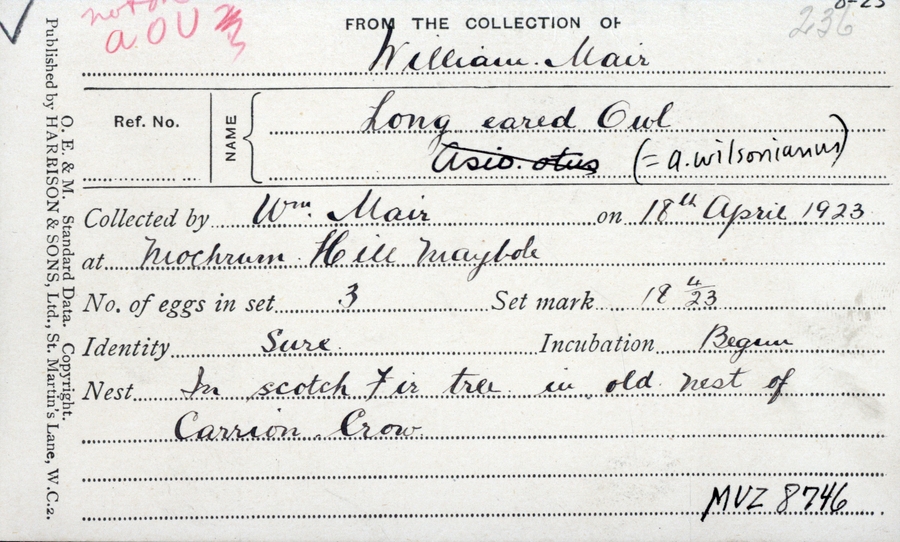 not in
A.O.U
8-23
236
FROM THE COLLECTION OF
William. Mair
Ref. No.
NAME
Long eared Owl
Asio. otus (= A. wilsonianus)
Collected by Wm. Mair on 18th April 1923
at Mochrum Hill Maybole
No. of eggs in set 3 Set mark 18 4/23
Identity Sure. Incubation Begun
Nest In scotch Fir tree in old nest of
Carrion Crow
MVZ 8746
O. E. & M. Standard Data. Copyright.
Published by HARRISON & SONS, Ltd., St. Martin's Lane, W.C.2.